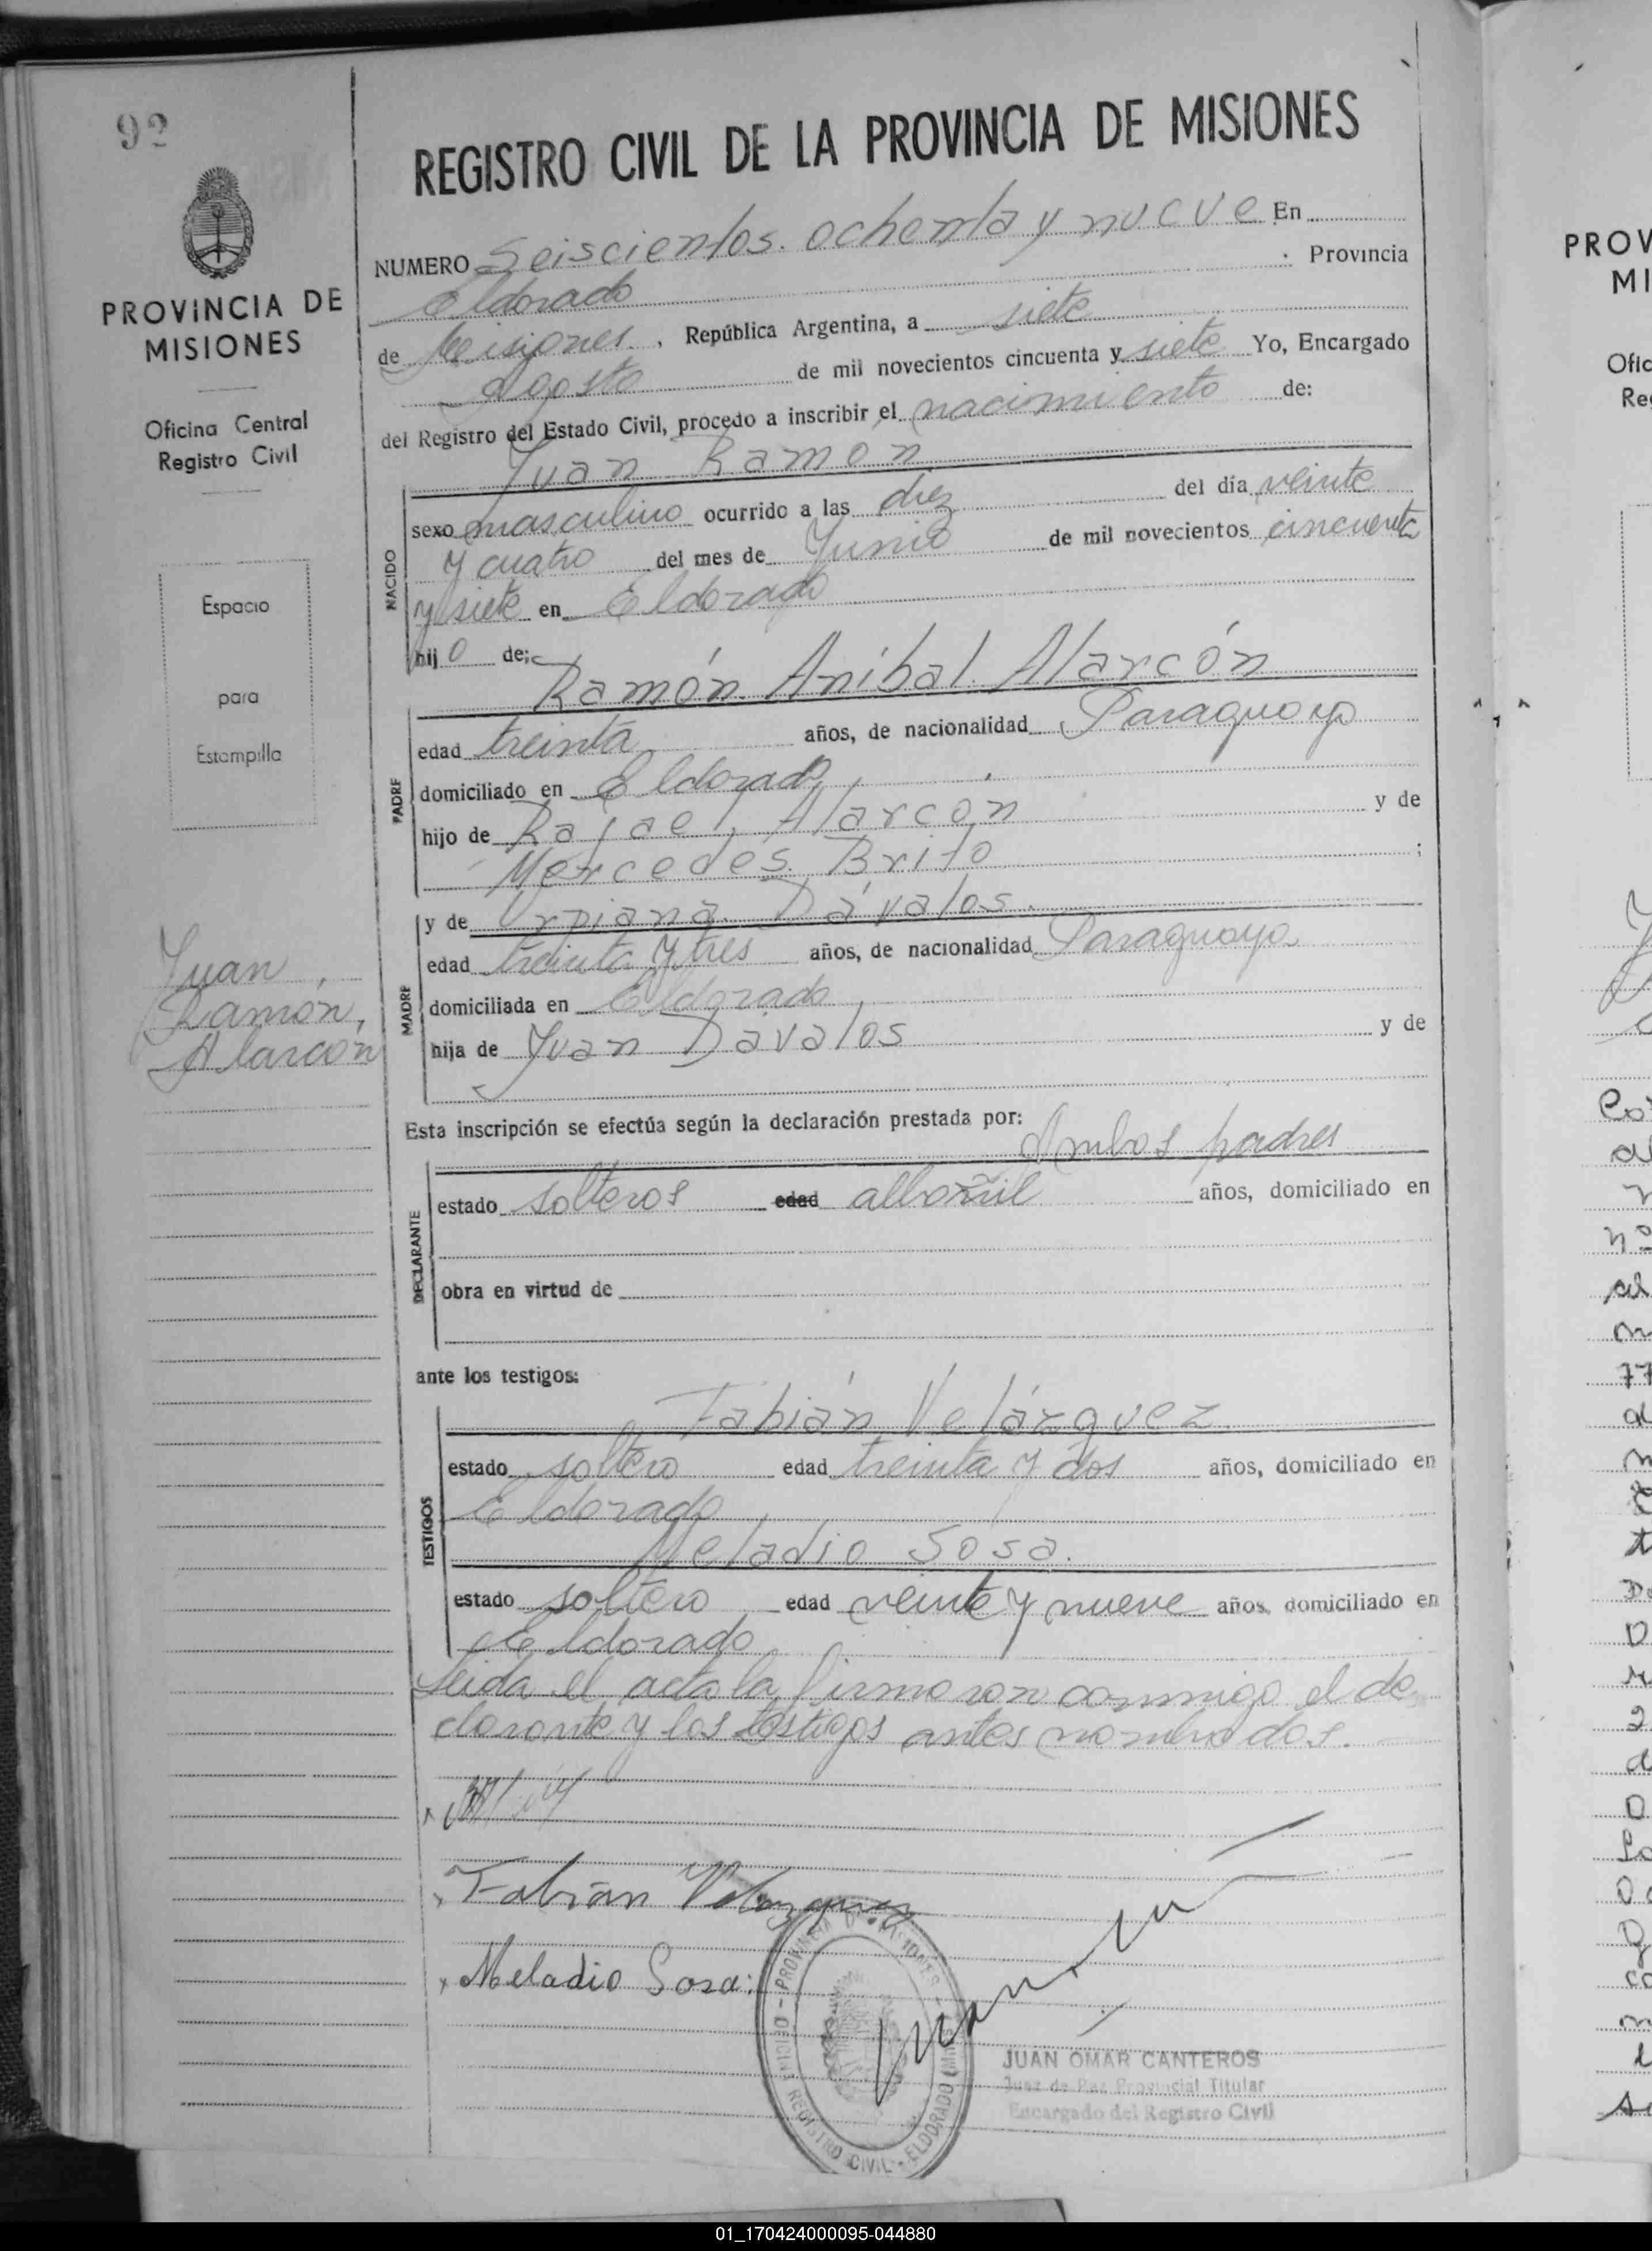 92
REGISTRO CIVIL DE LA PROVINCIA DE MISIONES
PROVINCIA DE
MISIONES
Oficina Central
Registro Civil
Espacio
para
Estampilla
Juan
Ramón,
Alarcón
NUMERO Seiscientos ochenta y nueve En
Eldorado Provincia
de Misiones, República Argentina, a siete
Agosto de mil novecientos cincuenta y siete Yo, Encargado
del Registro del Estado Civil, procedo a inscribir el nacimiento de:
Juan Ramon
NACIDO
sexo masculino ocurrido a las diez del día veinte
y cuatro del mes de Junio de mil novecientos cincuenta
y siete en Eldorado
hijo de:
Ramón Aníbal Alarcón
PADRE
edad treinta años, de nacionalidad Paraguaya
domiciliado en Eldorado
hijo de Rafael Alarcón y de
Mercedes Brito ;
MADRE
y de Urpiana Dávalos.
edad treinta y tres años, de nacionalidad Paraguaya
domiciliada en Eldorado
hija de Juan Dávalos y de
Esta inscripción se efectúa según la declaración prestada por:
Ambos padres
DECLARANTE
estado solteros edad albañil años, domiciliado en
obra en virtud de
ante los testigos:
TESTIGOS
Fabián Velázquez
estado soltero edad treinta y dos años, domiciliado en
Eldorado
Meladio Sosa.
estado soltero edad veinte y nueve años, domiciliado en
Eldorado
Leida el acta la firmaron conmigo el de
clarante y los testigos antes nombrados.
Fabian Velazquez
Meladio Sosa
PROVINCIA DE MISIONES - OFICINA REGISTRO CIVIL - ELDORADO
JUAN OMAR CANTEROS
Juez de Paz Provincial Titular
Encargado del Registro Civil
PROV
MI
Ofic
Re
01_170424000095-044880